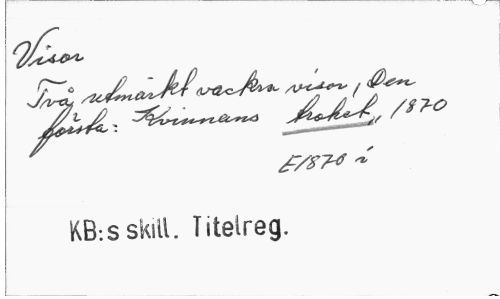 Visor
Två utmärkt vackra visor, Den
första: Kvinnans trohet,, 1870
E1870 i
KB:s skill. Titelreg.